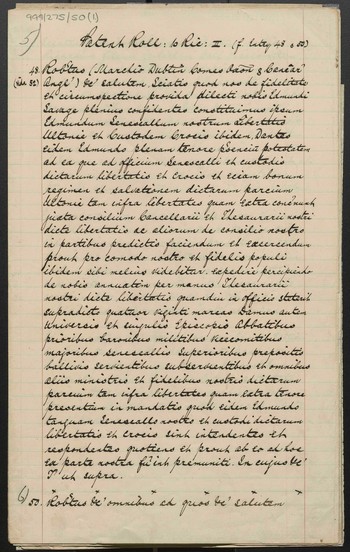 999/275/50(1)
5)
Patent Roll: 10 Ric: II. (f. Entry 48 & 50)
48. Robtus (Marchio Dublin Comes Oxon & Camerar
Angl') &c' salutem. Sciatis quod nos de fidelitate
et circumspectione provida dilecti nobis Edmundi
Savage plenius confidentes constituimus ipsum
Edmundum Senescallum nostrum Libertatis
Ultonie et Custodem Crocis ibidem. Dantes
eidem Edmundo plenam tenore potestatem
ad ea que ad officium Senescalli et custodis
dictarum libertatis et Crocis et eciam bonum
regimen et salvationem dictarum parcium
Ultonie tam infra libertates quam extra
juxta consilium Cancellarii et Thesaurarii nostri
dicte libertatis ac aliorum de consilio nostro
in partibus predictis faciendum et exercendum
prout pro comodo nostro et fidelis populi
ibidem sibi melius videbitur expedire percipiendo
de nobis annuatim per manus Thesaurarii
nostri dicte libertatis quamdiu in officio steterit
supradicto quatuor viginti marcas Damus autem
Universis et singulis Episcopis Abbatibus
prioribus baronibus militibus Vicecomitibus
majoribus senescallis Superioribus prepositis
ballivis servientibus subservientibus et omnibus
aliis ministris et fidelibus nostris dictarum
parcium tam infra libertates quam extra tenore
presentium in mandatis quod eidem Edmundo
tanquam Senescallo nostro et custodi dictarum
libertatis et Crocis sint intendentes et
respondentes quotiens et prout ab eo ad hoc
ex parte nostra fu'int premuniti. In cujus &c'
T' ut supra.
6) 50. "Robtus &c' omnibus ad quos &c' salutem"